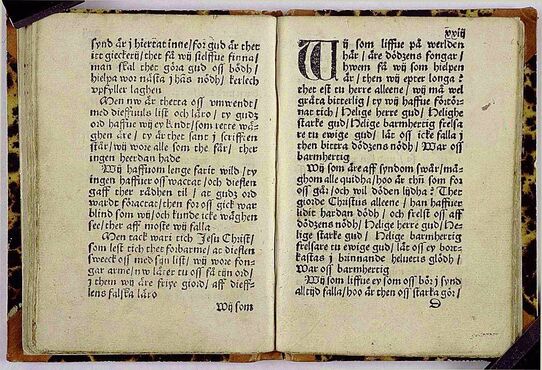 synd är j hiertat inne / for gud är thet
itt gieckeri / thet få wij sielffue finna /
man skal ther göra gud oss bödh /
hielpa wor nästa j hås nödh / kerlech
vpfyller laghen
Men nw är thetta oss vmwendt /
med dieffwuls list och läro / ty gudz
ord haffue wij ey kendt / som rette wä-
ghen äre / ty är thet sant j scrifften
står / wij wore alle som the får / ther
ingen heerdan hade
Wij haffuom lenge farit wild / ty
ingen haffuer oss wachtat / och diefflen
gaff ther rådhen til / at gudz ord
wardt föractat / then for oss gick war
blind som wij / och kunde icke wäghen
see / ther aff moste wij falla
Men tack wari tich Jesu Christ /
som lest tich thet forbarme / at diefflen
sweeck oss med san list / wij wore fon-
gar arme / nw läret tu oss få tijn ord /
j them wij äre friye giord / aff dieff-
lens falska läro
Wij som
xxiij
WIj som liffue på werlden
här / äre dödzens fongar /
hwem få wij som hielpen
är / then wij epter longa?
thet est tu herre alleene / wij må wel
gråta bitterlig / ty wij haffue förtör-
nat tich / Helige herre gud / Helighe
starke gud / Helige barmhertig frelsa
re tu ewige gud / låt oss icke falla j
then bittra dödzens nödh / War oss
barmhertig
Wij som äre aff syndom swår / må-
ghom alle quidha / hoo är thn som for
oss går / och wil döden lijdha? Ther
giorde Christus alleene / han haffuer
lidit hardan dödh / och frelst oss aff
dödzens nödh / Helige herre gud / He-
lige starke gud / Helige barmhertig
frelsare tu ewige gud / låt os ey bort-
kastas j brinnande heluetis glödh /
War oss barmhertig
Wij som liffue ey som oss bör j synd
alltijd falla / hoo är then oss starka gör /
D